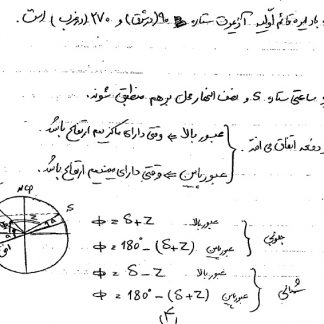 با دایره قائم اولیه. آزیموت ستاره 90 (در شرق) و 270 (در غرب) است.
ساعتی ستاره S و نصف النهار محل بر هم منطبق شوند.
دفعه اتفاق می افتد.
عبور بالا ⇐ وقتی دارای ماکزیمم ارتفاع باشد.
عبور پایین ⇐ وقتی دارای مینیمم ارتفاع باشد.
NCP
S
Z
افق
جنوبی
عبور بالا Φ = δ + Z
عبور پایین Φ = 180° - (δ + Z)
شمالی
عبور بالا Φ = δ - Z
عبور پایین Φ = 180° - (δ + Z)
(۴)